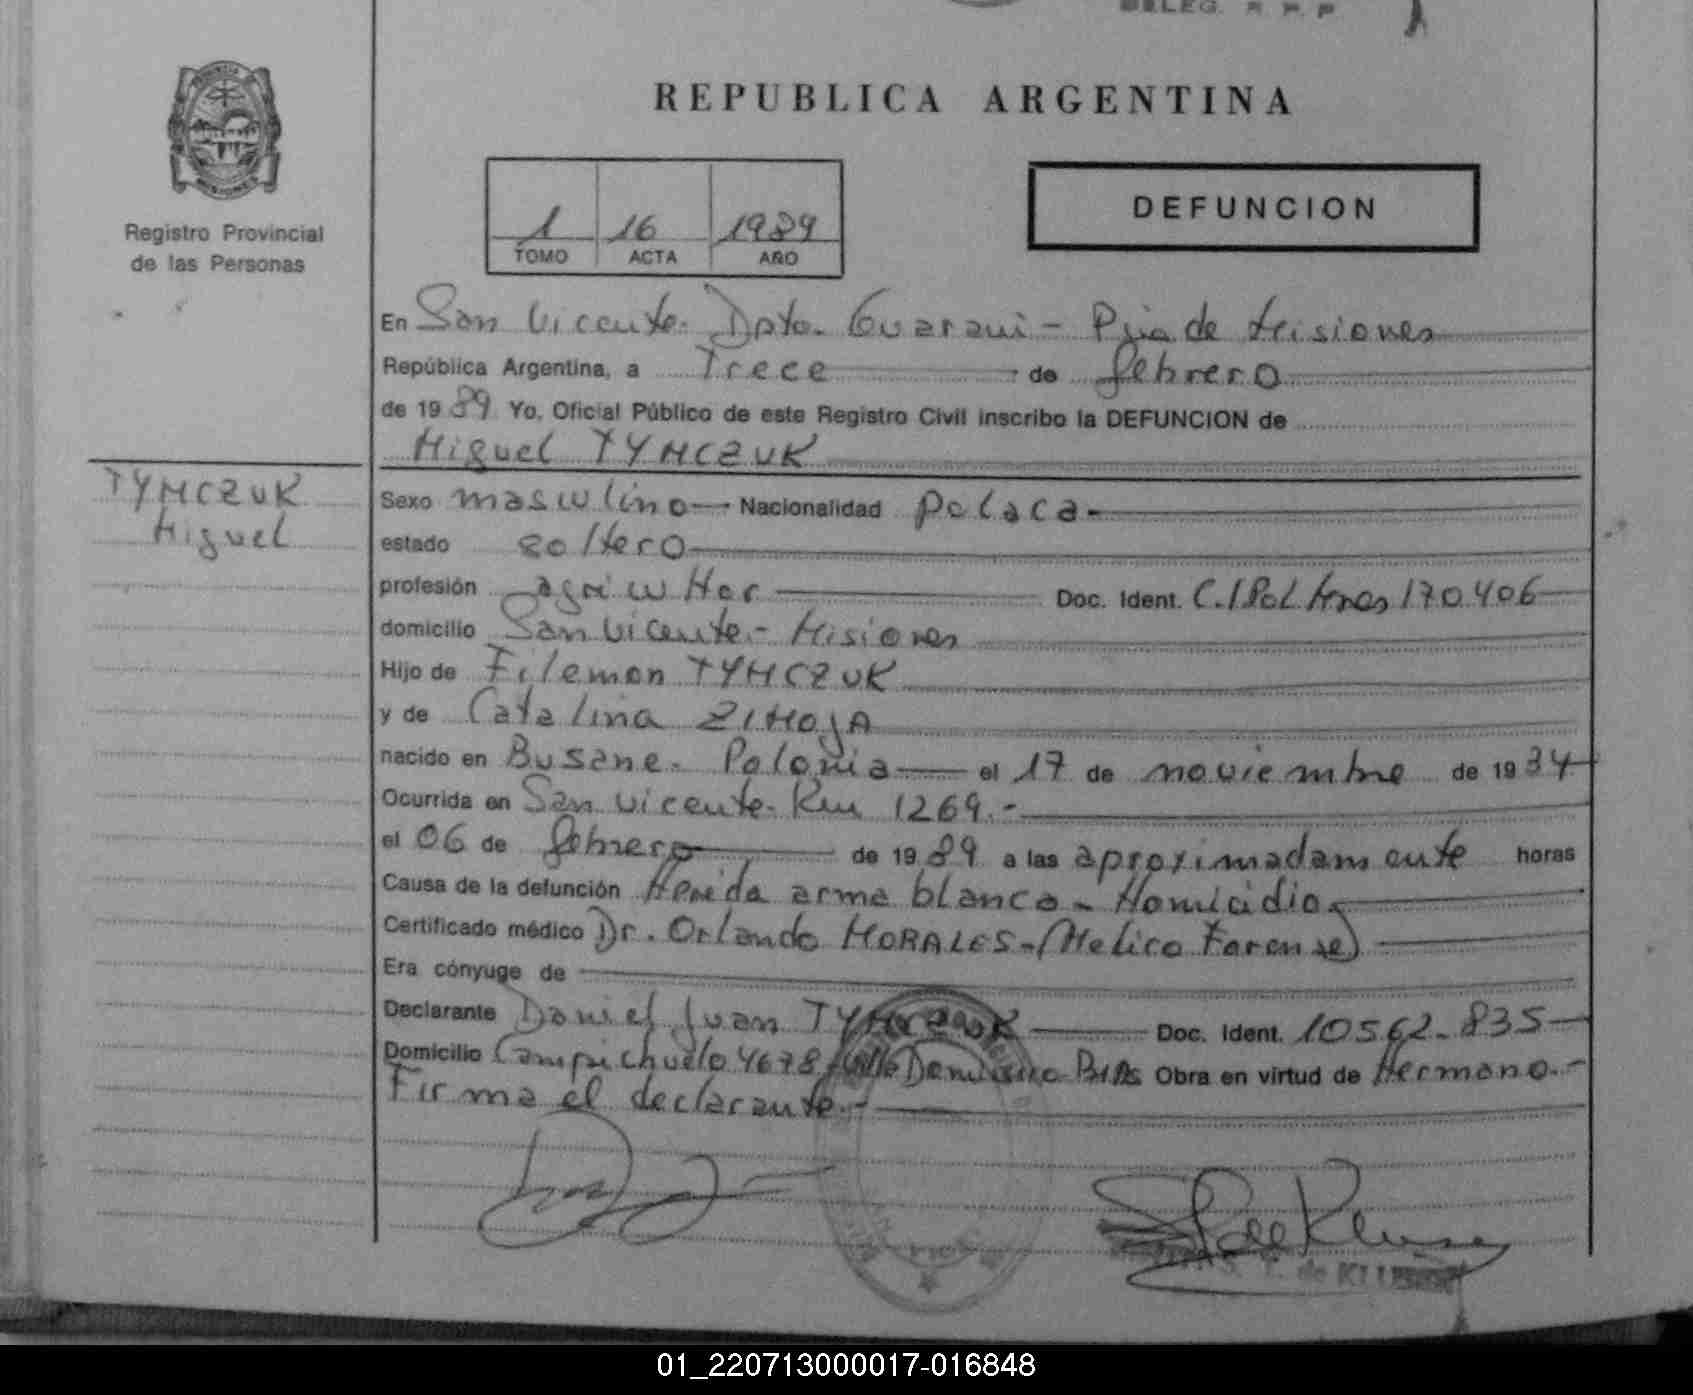 DELEG. R. P. P
REPUBLICA ARGENTINA
PROVINCIA DE
MISIONES
Registro Provincial
de las Personas
1 16 1989
TOMO ACTA AÑO
DEFUNCION
En San Vicente- Dpto. Guarani - Pcia de Misiones
República Argentina, a Trece de febrero
de 1989 Yo, Oficial Público de este Registro Civil inscribo la DEFUNCION de
Miguel TYMCZUK
TYMCZUK
Miguel
Sexo masculino Nacionalidad polaca-
estado soltero
profesión agricultor Doc. Ident. C.I Pol Mnes 170.406
domicilio San Vicente - Misiones
Hijo de Filemon TYMCZUK
y de Catalina ZIMOJA
nacido en Busane - Polonia el 17 de noviembre de 1934
Ocurrida en San Vicente - Km 1269.-
el 06 de febrero de 1989 a las aproximadamente horas
Causa de la defunción Herida arma blanca - Homicidio
Certificado médico Dr. Orlando MORALES - (Medico Forense)
Era cónyuge de
Declarante Daniel Juan TYMCZUK Doc. Ident. 10562.835
Domicilio Campichuelo 4678 Villa Dominico BsAs Obra en virtud de Hermano.-
Firma el declarante.-
de KLUSENER
01_220713000017-016848